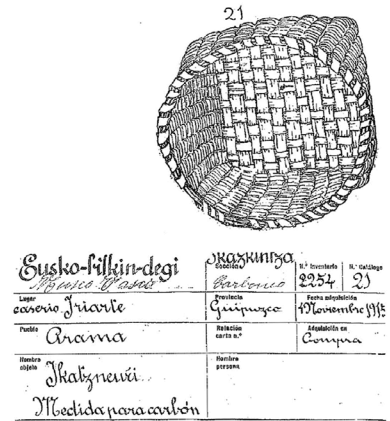 21
Eusko-filkin-degi
Ikazkintza
Museo Vasco
Sección
Carboneo
N.º Inventario
2254
N.º Catálogo
21
Lugar
caserío Iriarte
Provincia
Guipuzco
Fecha adquisición
Noviembre
Pueblo
Arama
Relación
carta n.º
Adquisición en
Compra
Nombre
objeto
Ikatzneuŕi
Medida para carbón
Nombre
persona